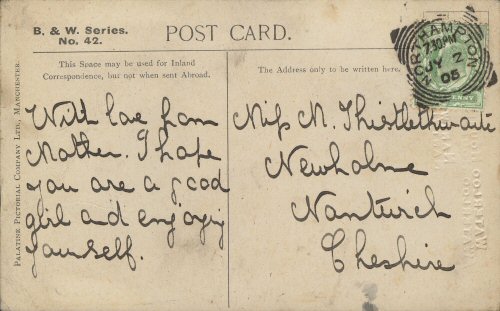 B. & W. Series.
No. 42.
POST CARD.
This Space may be used for Inland
Correspondence, but not when sent Abroad.
The Address only to be written here.
PALATINE PICTORIAL COMPANY LTD., MANCHESTER.
NORTHAMPTON
JY 2
05
With love from
Mother. I hope
you are a good
girl and enjoying
yourself.
Miss M. Thistlethwaite
Newholme
Nantwich
Cheshire